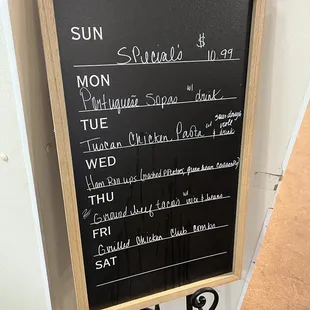 SUN
Specials $ 10.99
MON
Portuguese Sopas w/ drink
TUE
sourdough
roll
Tuscan Chicken Pasta w/ & drink
WED
Ham Roll ups (mashed potatoes, green bean casserole)
THU
Ground beef tacos w/ rice & beans
FRI
Grilled Chicken Club combo
SAT